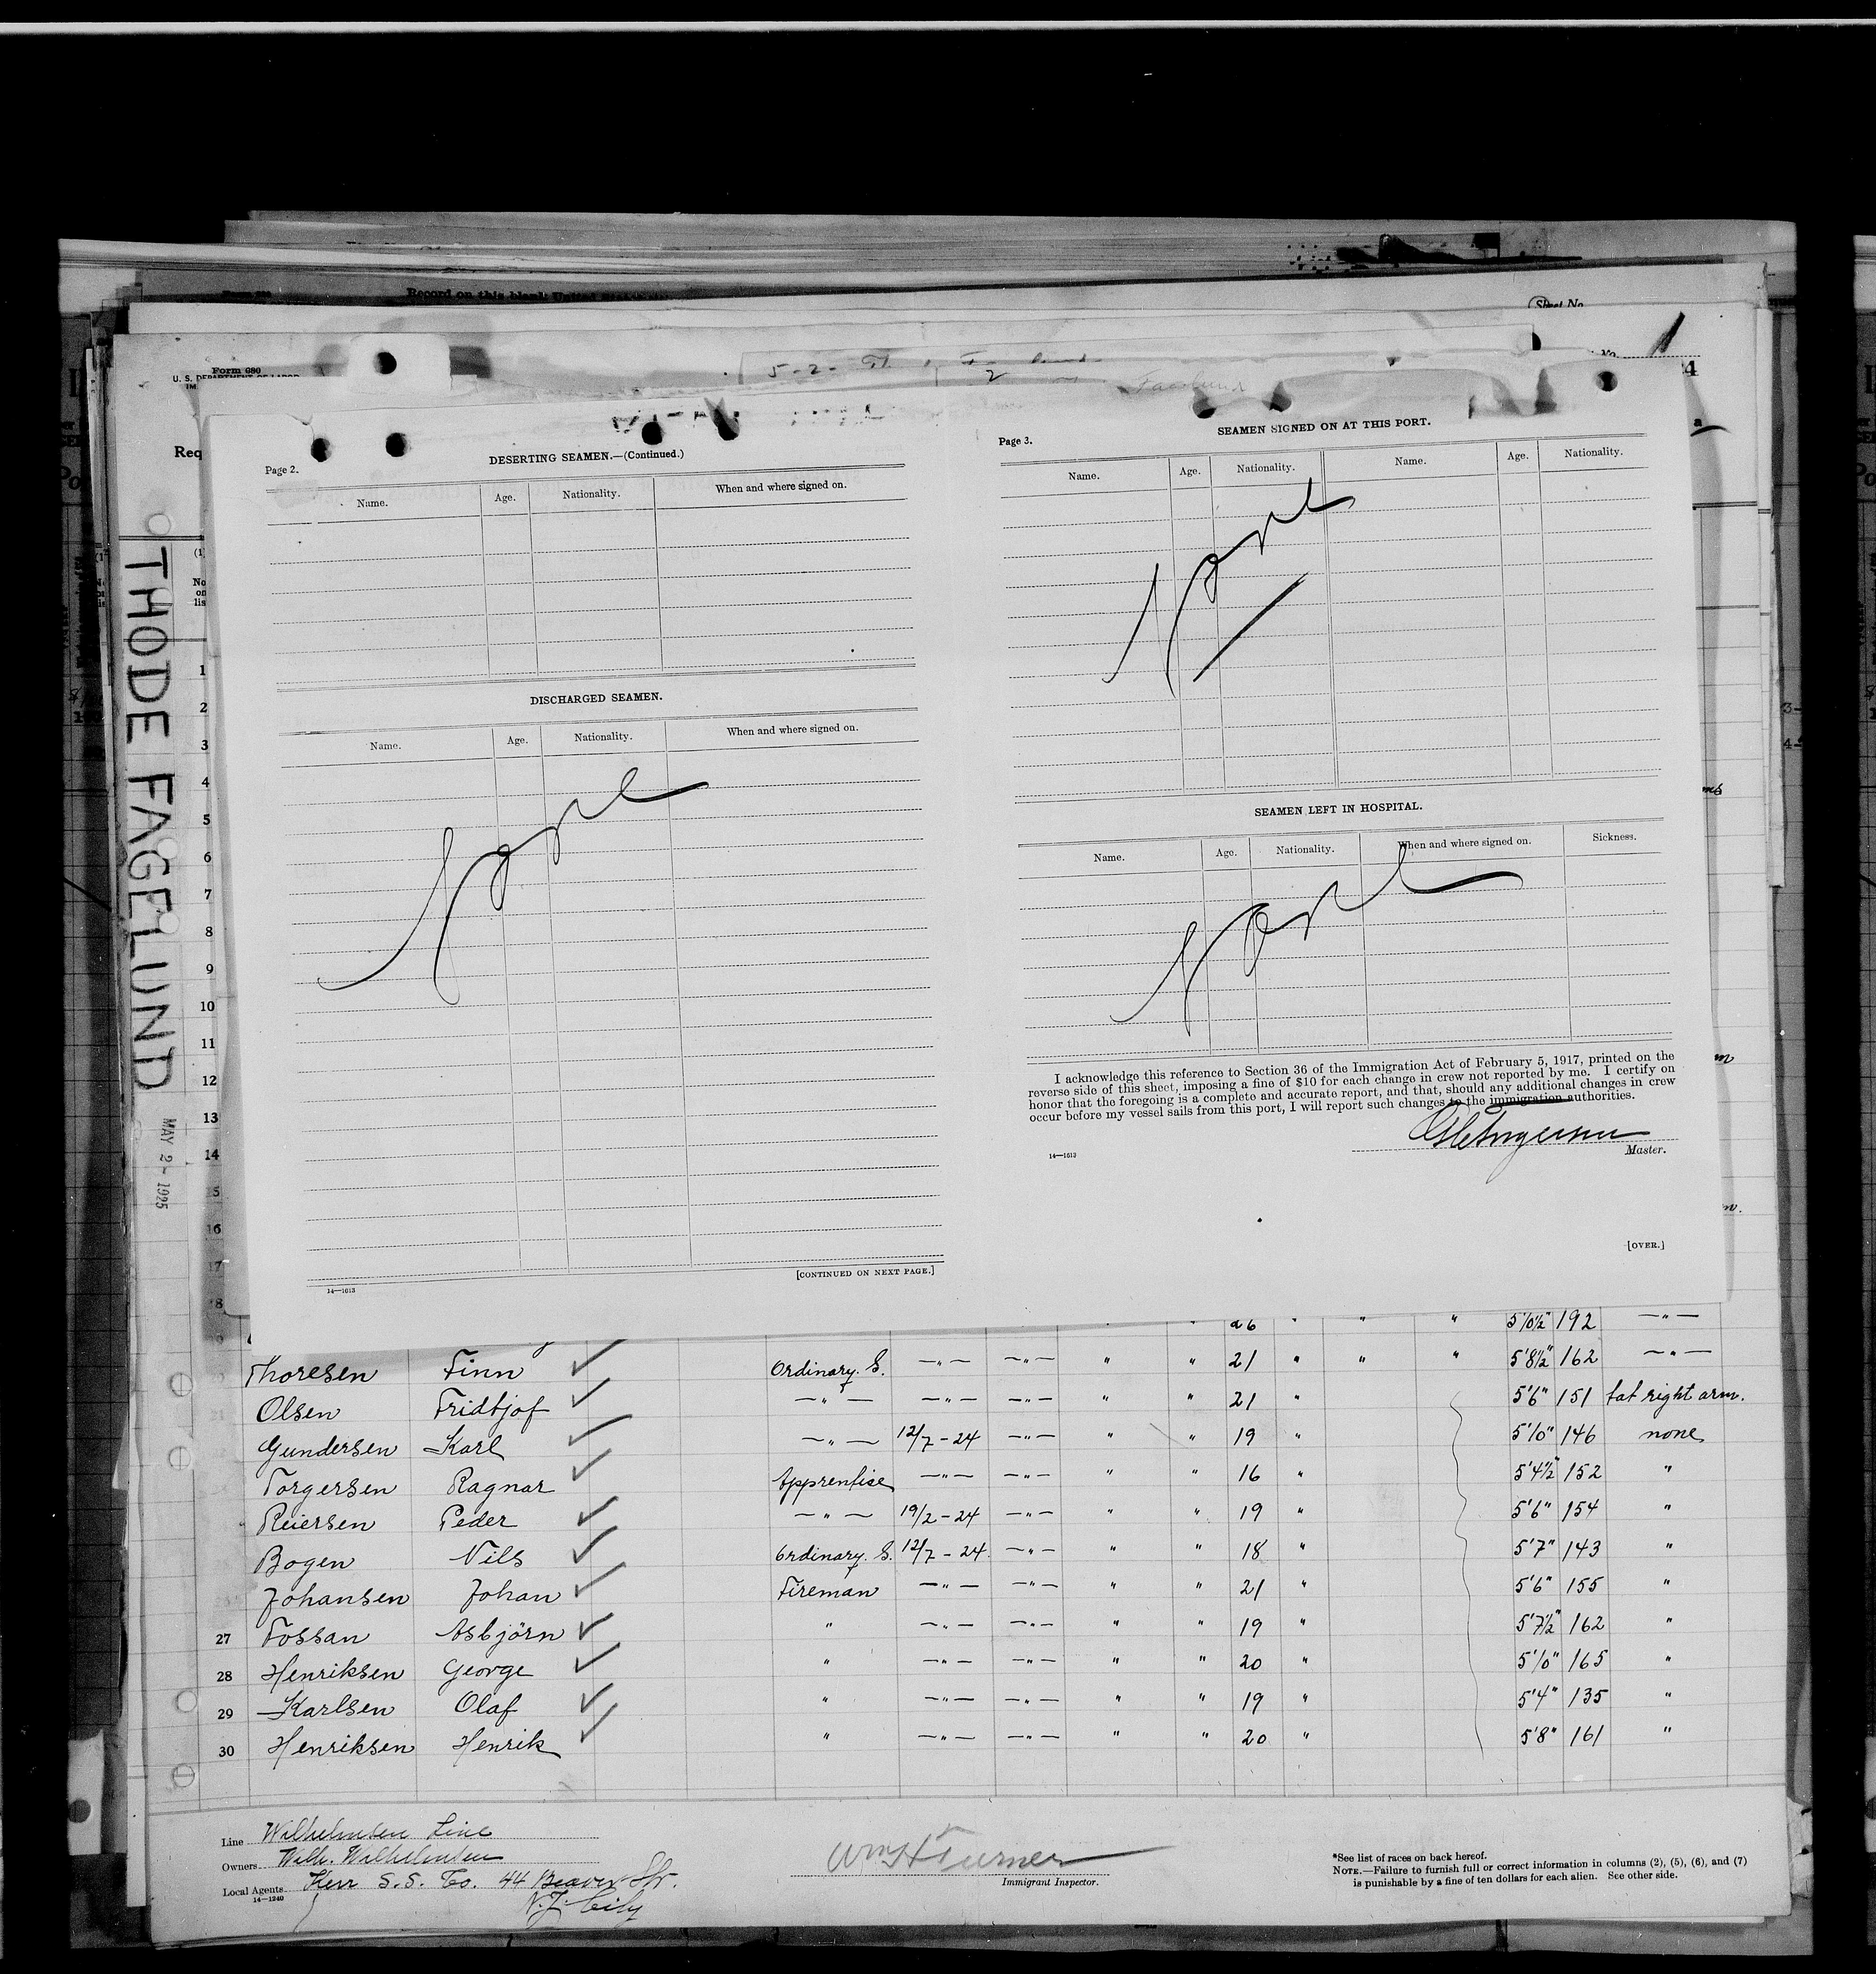 Record on this blank United States
Sheet No.
Form 680
U. S. DEPARTMENT OF LABOR
No. 1
4
Req
THODE FAGELUND
MAY 2- 1925
Page 2.
DESERTING SEAMEN.—(Continued.)
Name. Age. Nationality. When and where signed on.
DISCHARGED SEAMEN.
Name. Age. Nationality. When and where signed on.
None
[CONTINUED ON NEXT PAGE.]
14—1613
Page 3.
SEAMEN SIGNED ON AT THIS PORT.
Name. Age. Nationality. Name. Age. Nationality.
None
SEAMEN LEFT IN HOSPITAL.
Name. Age. Nationality. When and where signed on. Sickness.
None
I acknowledge this reference to Section 36 of the Immigration Act of February 5, 1917, printed on the
reverse side of this sheet, imposing a fine of $10 for each change in crew not reported by me. I certify on
honor that the foregoing is a complete and accurate report, and that, should any additional changes in crew
occur before my vessel sails from this port, I will report such changes to the immigration authorities.
Master.
14—1613
[OVER.]
1
2
3
4
5
6
7
8
9
10
11
12
13
14
15
16
17
18
26 " " " 5'10½" 192 —"—
Thoresen Finn ✓ Ordinary S. —"— —"— " " 21 " " " 5'8½" 162 —"—
Olsen Fridtjof ✓ —"— —"— —"— " " 21 " 5'6" 151 tat right arm.
Gundersen Karl ✓ —"— 12/7-24 —"— " " 19 " 5'10" 146 none
Torgersen Ragnar ✓ Apprentise —"— —"— " " 16 " 5'4½" 152 "
Reiersen Peder ✓ —"— 19/2-24 —"— " " 19 " 5'6" 154 "
Bogen Nils ✓ Ordinary S. 12/7-24 —"— " " 18 " 5'7" 143 "
Johansen Johan ✓ Fireman —"— —"— " " 21 " 5'6" 155 "
27 Fossan Asbjörn ✓ " —"— —"— " " 19 " 5'7½" 162 "
28 Henriksen George ✓ " —"— —"— " " 20 " 5'10" 165 "
29 Karlsen Olaf ✓ " —"— —"— " " 19 " 5'4" 135 "
30 Henriksen Henrik ✓ " —"— —"— " " 20 " 5'8" 161 "
Line Wilhelmsen Line
Owners Wilh. Wilhelmsen
Local Agents Kerr S.S. Co. 44 Beaver Str.
N.Y. City
14—1240
Wm H Turner
Immigrant Inspector.
*See list of races on back hereof.
NOTE.—Failure to furnish full or correct information in columns (2), (5), (6), and (7)
is punishable by a fine of ten dollars for each alien. See other side.